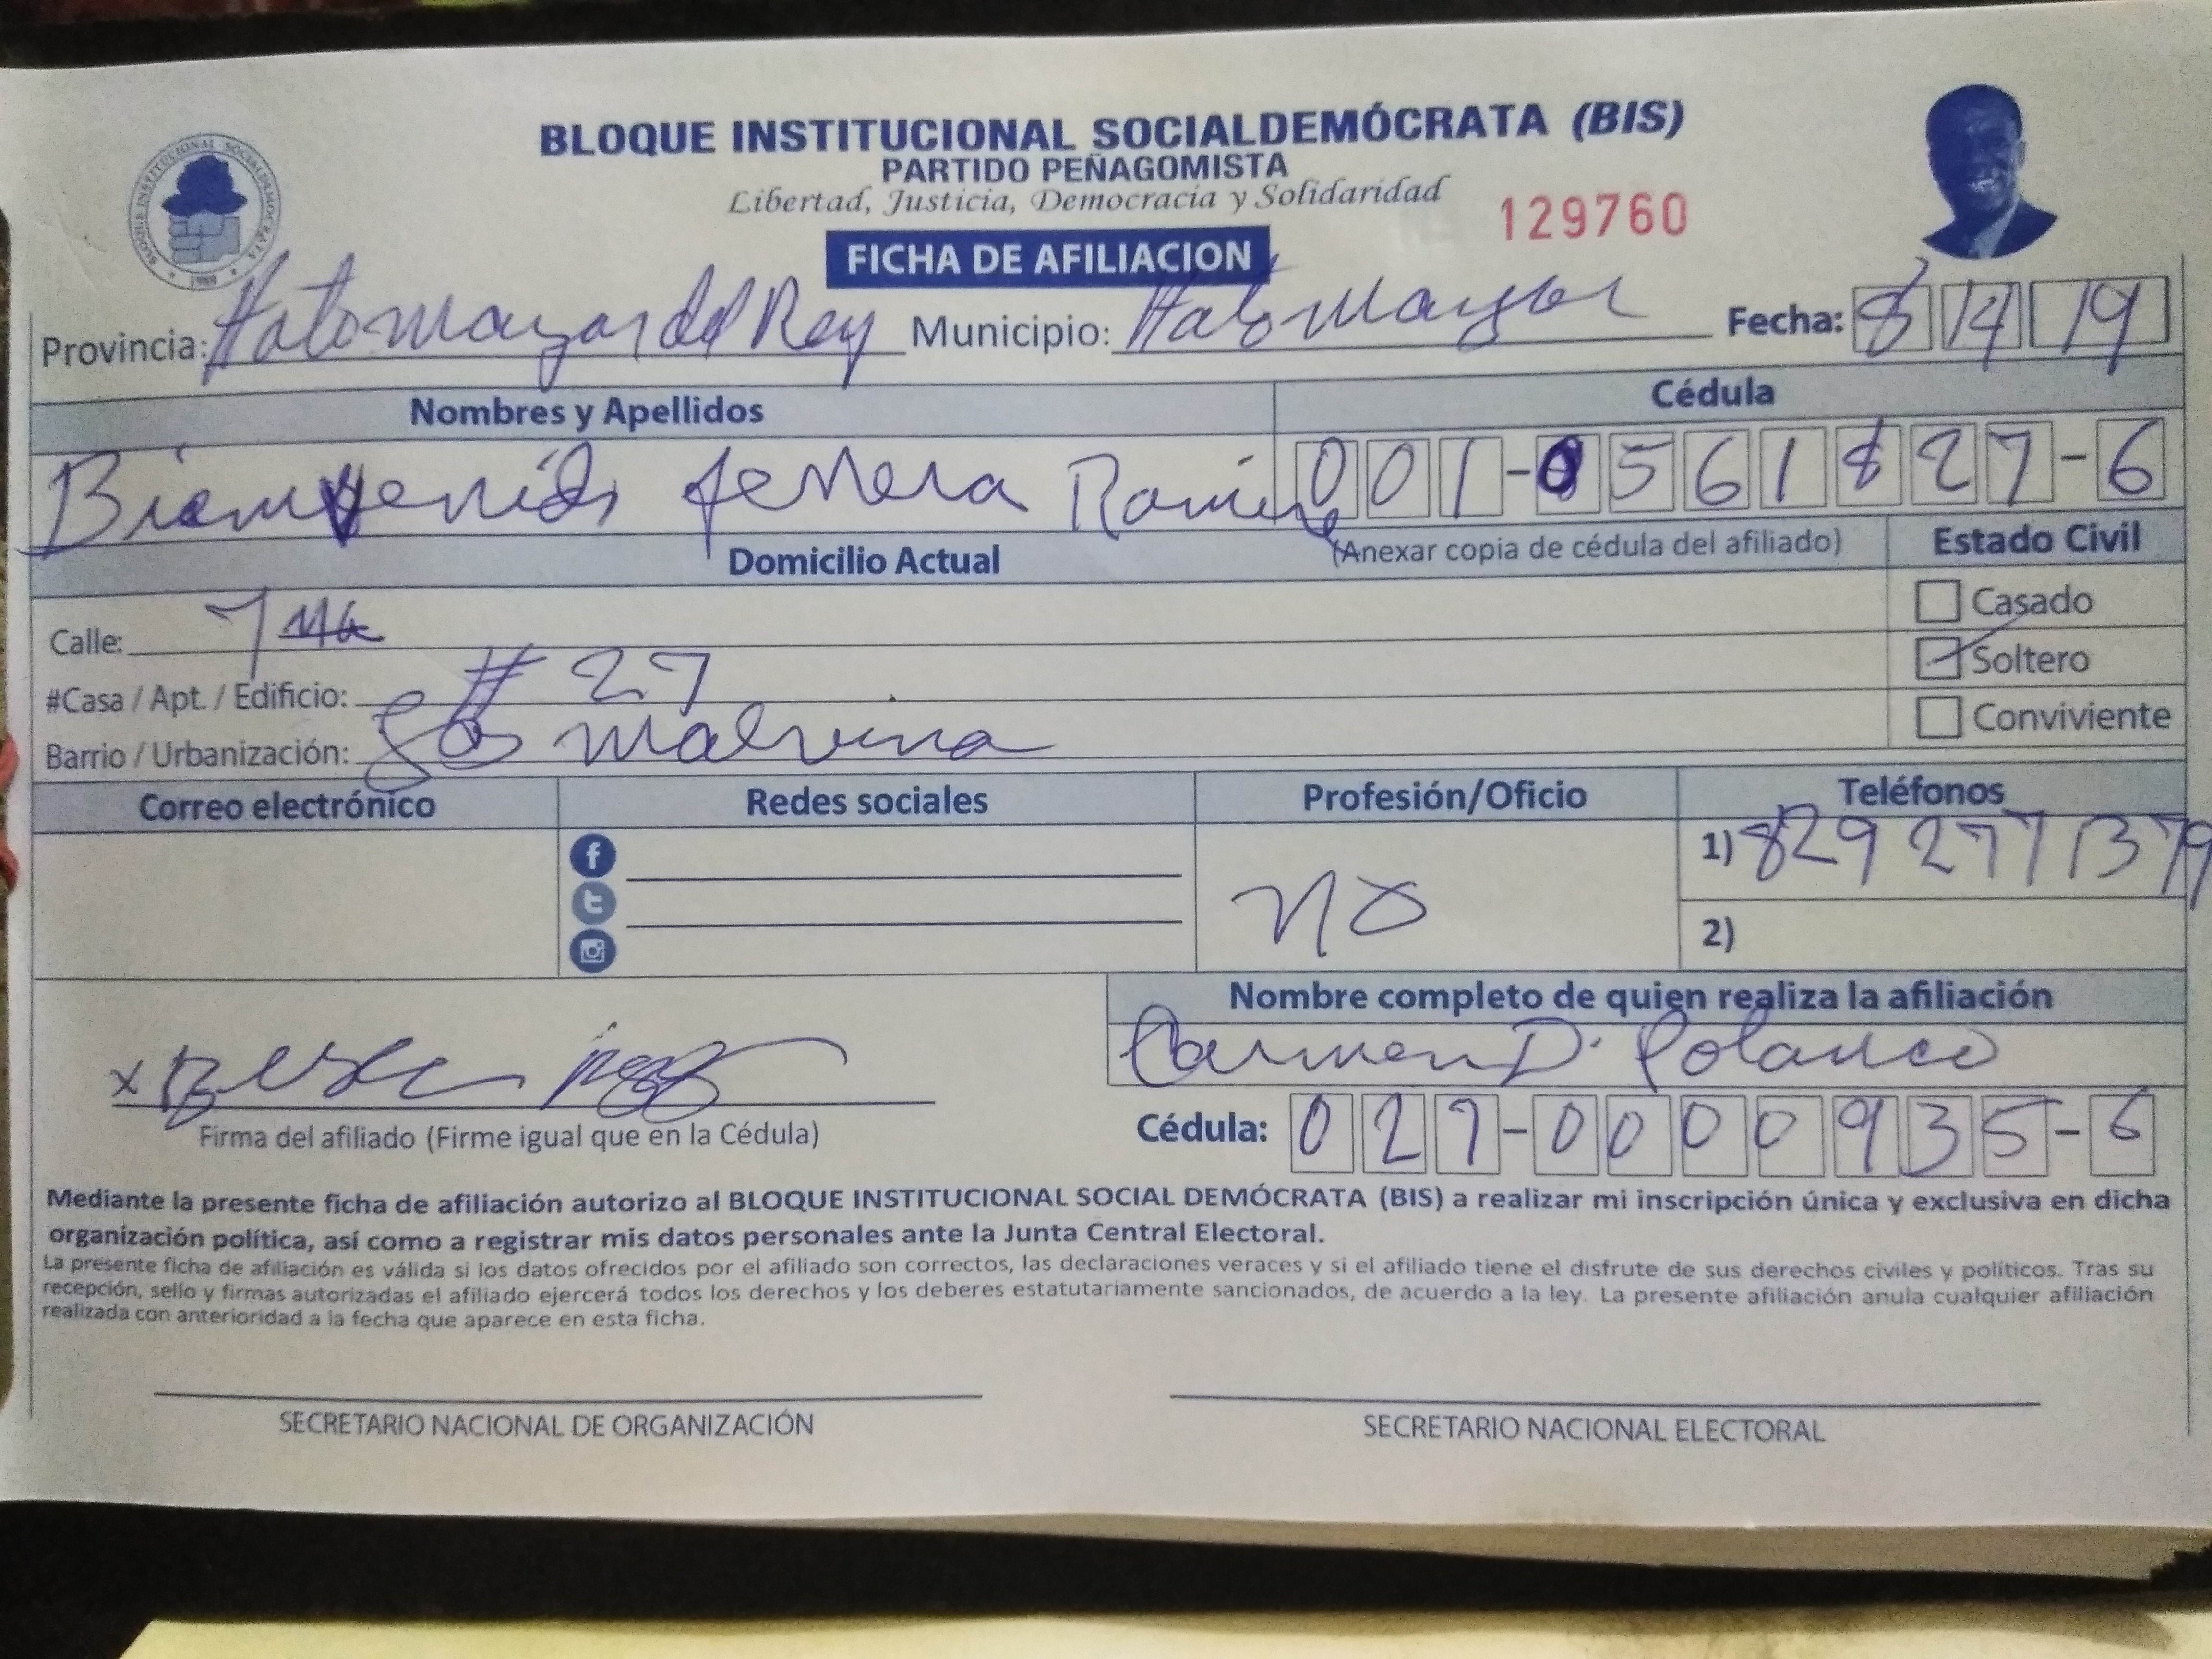 BLOQUE INSTITUCIONAL SOCIALDEMÓCRATA (BIS)
PARTIDO PEÑAGOMISTA
Libertad, Justicia, Democracia y Solidaridad
129760
FICHA DE AFILIACION
Provincia: Hato mayor del Rey Municipio: Hato mayor Fecha: 8 14 19
Nombres y Apellidos Cédula
Bienvenido ferrera Ramire 001-0561827-6
Domicilio Actual (Anexar copia de cédula del afiliado) Estado Civil
Calle: 7ma
Casado
#Casa / Apt. / Edificio: # 27
Soltero
Barrio / Urbanización: las malvina
Conviviente
Correo electrónico Redes sociales Profesión/Oficio Teléfonos
1) 829 277 1379
no
2)
Nombre completo de quien realiza la afiliación
Carmen D. Polanco
x
Firma del afiliado (Firme igual que en la Cédula) Cédula: 027-0000935-6
Mediante la presente ficha de afiliación autorizo al BLOQUE INSTITUCIONAL SOCIAL DEMÓCRATA (BIS) a realizar mi inscripción única y exclusiva en dicha
organización política, así como a registrar mis datos personales ante la Junta Central Electoral.
La presente ficha de afiliación es válida si los datos ofrecidos por el afiliado son correctos, las declaraciones veraces y si el afiliado tiene el disfrute de sus derechos civiles y políticos. Tras su
recepción, sello y firmas autorizadas el afiliado ejercerá todos los derechos y los deberes estatutariamente sancionados, de acuerdo a la ley. La presente afiliación anula cualquier afiliación
realizada con anterioridad a la fecha que aparece en esta ficha.
SECRETARIO NACIONAL DE ORGANIZACIÓN SECRETARIO NACIONAL ELECTORAL